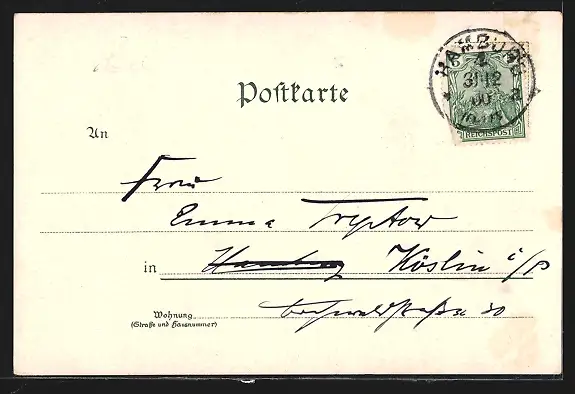 HAMBURG
4
31 12
00
REICHSPOST
Postkarte
An
Frau
Emma Tryptow
in Hamburg Köslin i/P
Wohnung
(Straße und Hausnummer)
30